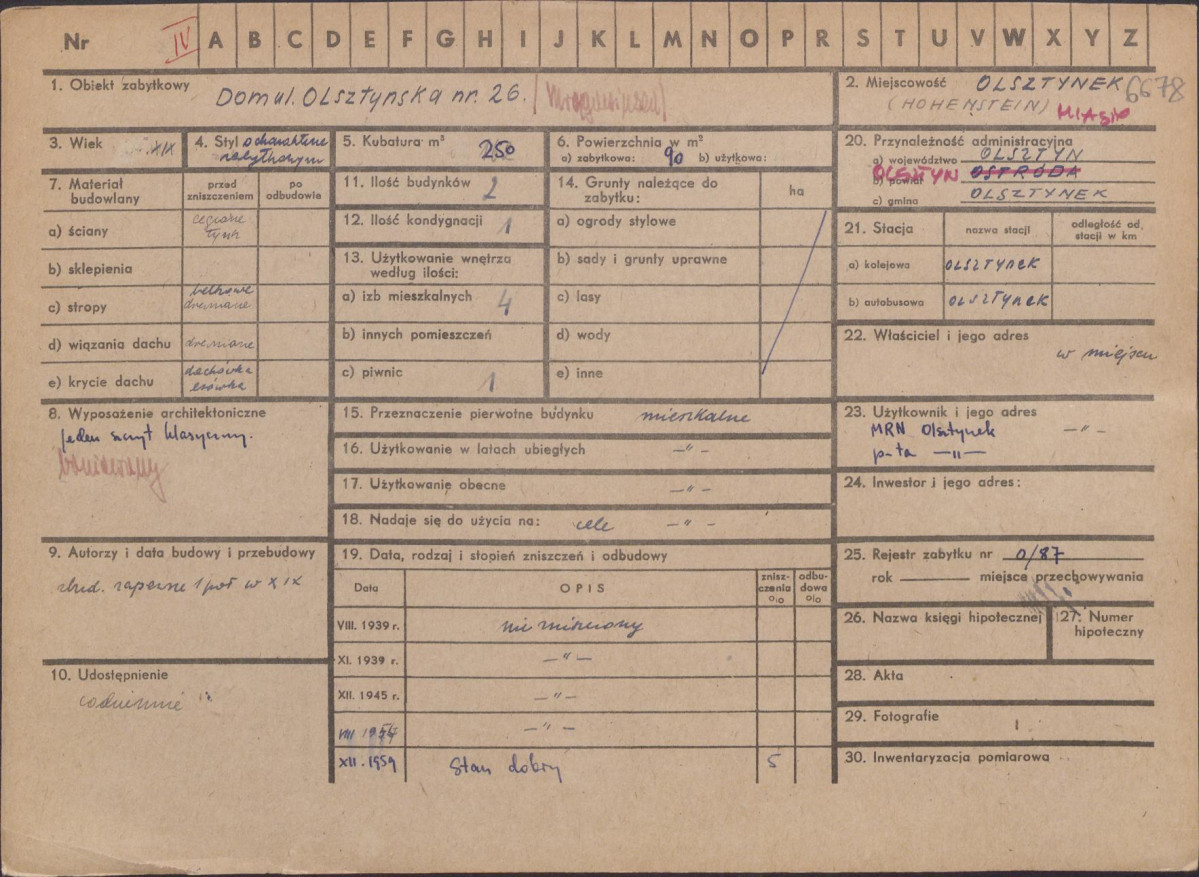 Nr IV A B C D E F G H I J K L M N O P R S T U V W X Y Z
1. Obiekt zabytkowy
Dom ul. Olsztyńska nr. 26.
2. Miejscowość OLSZTYNEK 6678
(HOHENSTEIN) MIASTO
3. Wiek XIX
4. Styl o charakterze
zabytkowym
5. Kubatura m³ 250
6. Powierzchnia w m²
a) zabytkowa: 90 b) użytkowa:
20. Przynależność administracyjna
a) województwo OLSZTYN
OLSZTYN b) powiat OSTRÓDA
c) gmina OLSZTYNEK
7. Materiał budowlany
przed zniszczeniem
po odbudowie
a) ściany ceglane
tynk
b) sklepienia
c) stropy belkowe
drewniane
d) wiązania dachu drewniane
e) krycie dachu dachówka
esówka
11. Ilość budynków 2
12. Ilość kondygnacji 1
13. Użytkowanie wnętrza
według ilości:
a) izb mieszkalnych 4
b) innych pomieszczeń
c) piwnic 1
14. Grunty należące do
zabytku:
ha
a) ogrody stylowe
b) sady i grunty uprawne
c) lasy
d) wody
e) inne
21. Stacja
nazwa stacji
odległość od,
stacji w km
a) kolejowa OLSZTYNEK
b) autobusowa OLSZTYNEK
22. Właściciel i jego adres
w miejscu
8. Wyposażenie architektoniczne
jeden szczyt klasyczny.
15. Przeznaczenie pierwotne budynku mieszkalne
16. Użytkowanie w latach ubiegłych —"—
17. Użytkowanie obecne —"—
18. Nadaje się do użycia na: cele —"—
23. Użytkownik i jego adres
MRN Olsztynek —"—
p-ta —"—
24. Inwestor i jego adres:
9. Autorzy i data budowy i przebudowy
zbud. zapewne 1 poł w XIX
19. Data, rodzaj i stopień zniszczeń i odbudowy
Data
OPIS
znisz-
czenia
%
odbu-
dowa
%
VIII. 1939 r. nie zniszczony
XI. 1939 r. —"—
XII. 1945 r. —"—
VIII 1954 —"—
XII. 1959 Stan dobry 5
25. Rejestr zabytku nr 0/87
rok miejsce przechowywania
26. Nazwa księgi hipotecznej
27. Numer
hipoteczny
10. Udostępnienie
codziennie
28. Akta
29. Fotografie 1
30. Inwentaryzacja pomiarowa